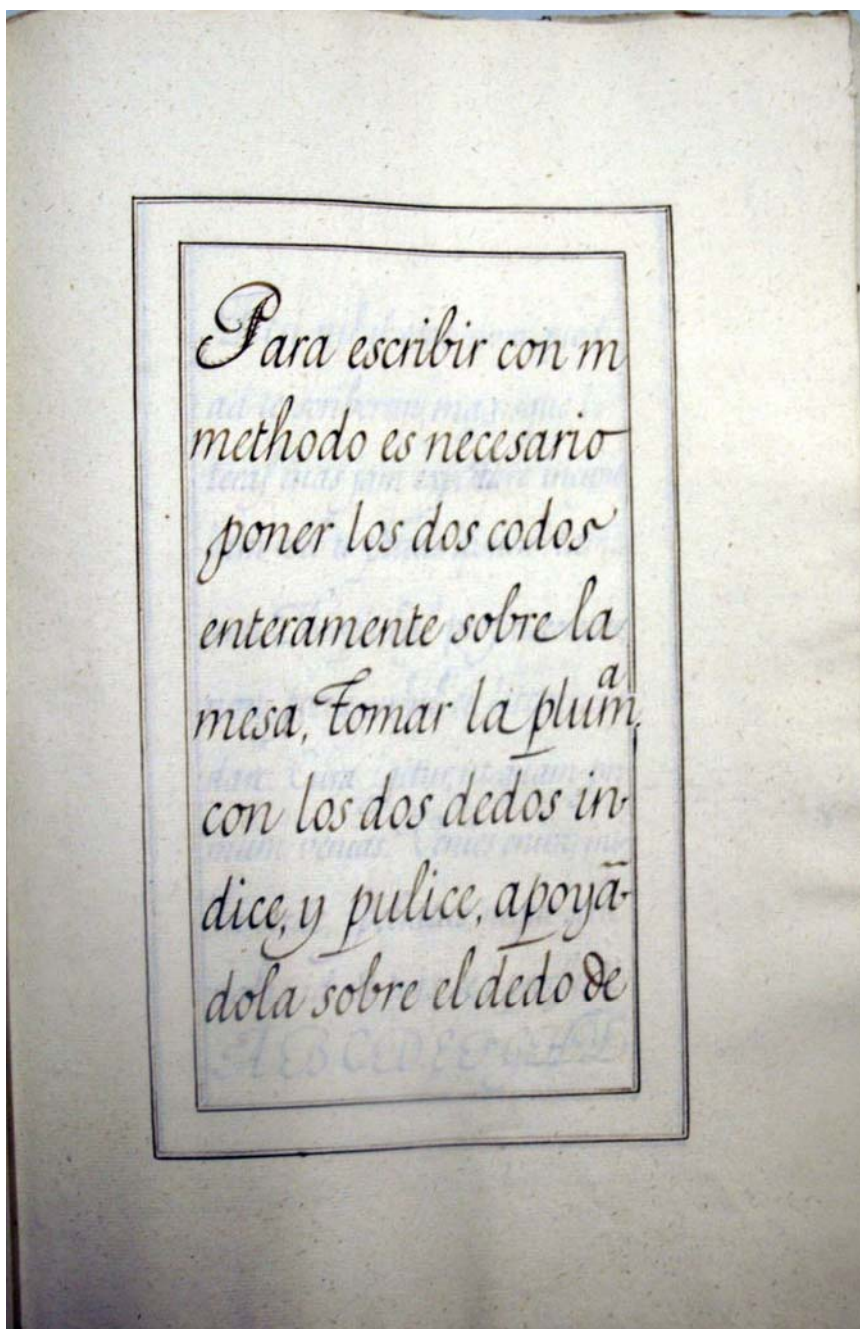 Para escribir con m
methodo es necesario
poner los dos codos
enteramente sobre la
mesa, tomar la plumᵃ.
con los dos dedos in-
dice, y pulice, apoyā-
dola sobre el dedo de